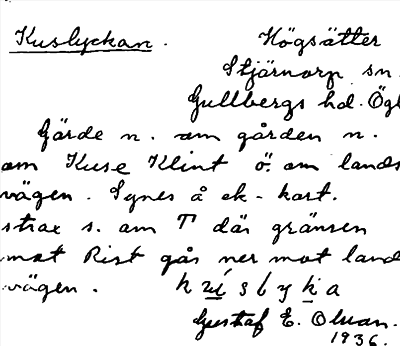 Kuslyckan. Högsätter
Stjärnorp sn.
Gullbergs hd. Ögl
Gärde n. om gården n.
om Kuse Klint ö. om lands
vägen. Synes å ek-kart.
strax s. om T där gränsen
mot Rist går ner mot land
vägen. k
Gustaf E. Olsson.
1936.